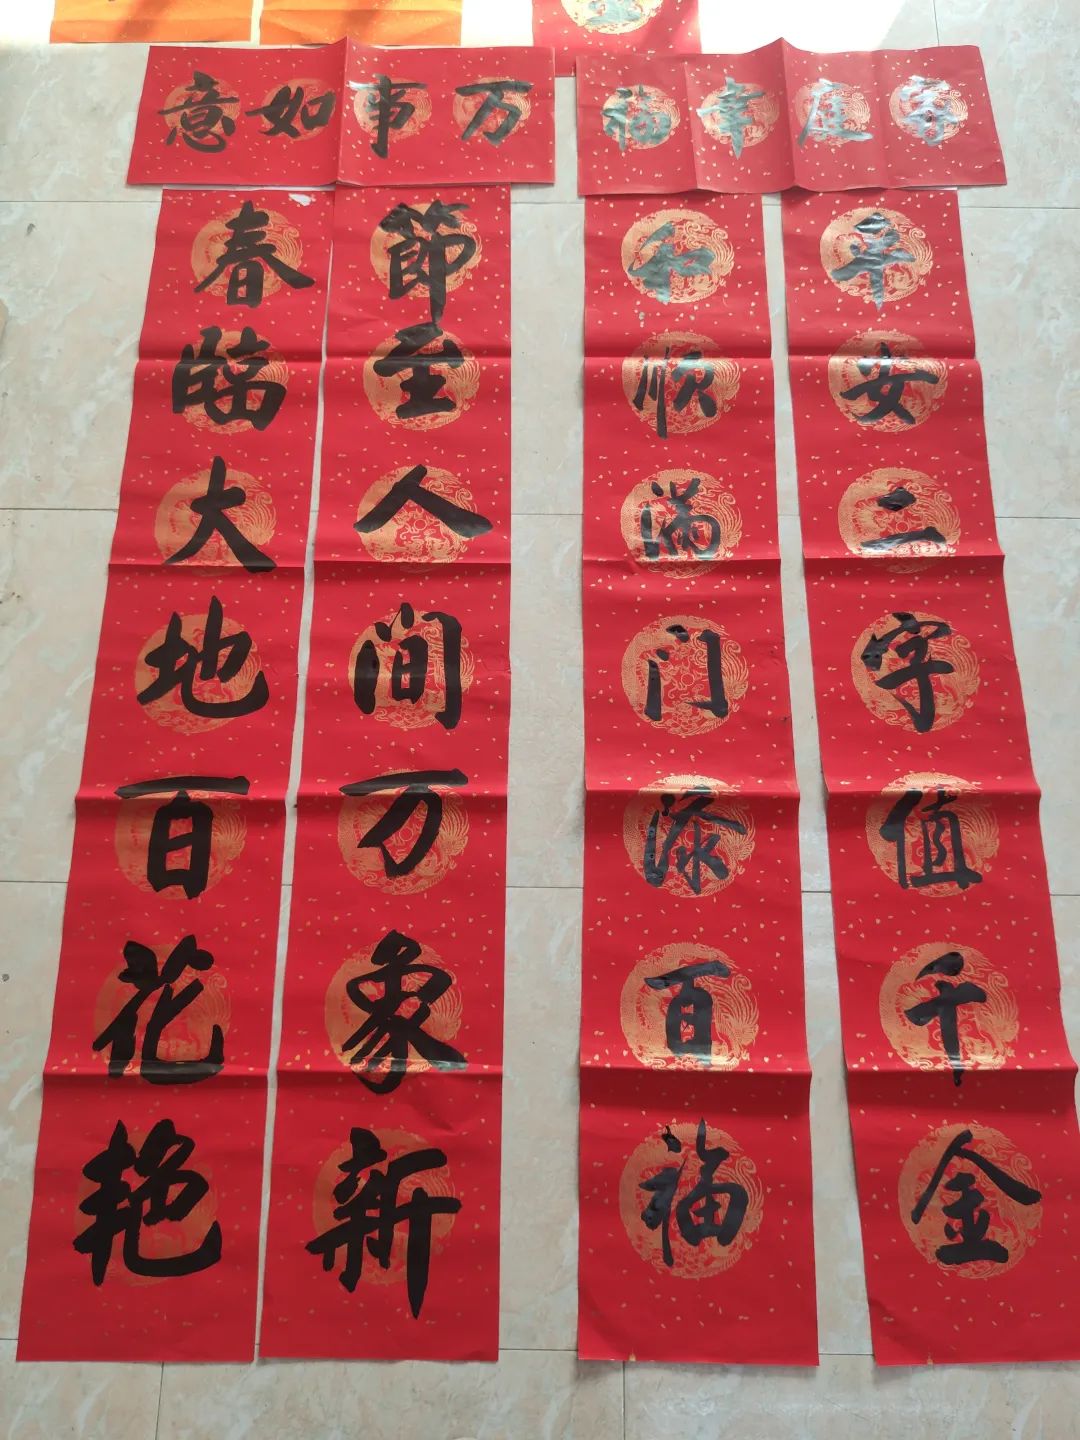 家庭幸福
平安二字值千金
和顺满门添百福
万事如意
節至人间万象新
春臨大地百花艳